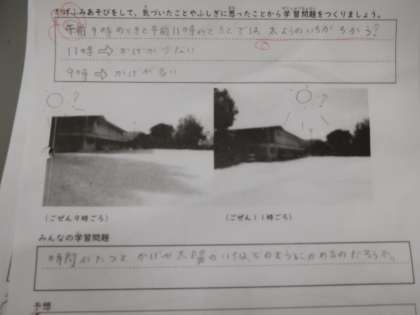 かげふみあそびをして、気づいたことやふしぎに思ったことから学習問題をつくりましょう。
午前9時のときと午前11時のときとでは、太ようのいちがちがう?
11時⇨かげが少ない
9時⇨かげが多い
?
?
(ごぜん9時ごろ) (ごぜん11時ごろ)
みんなの学習問題
時間がたつと、かげや太陽のいちはどのようにかわるのだろうか。
予想